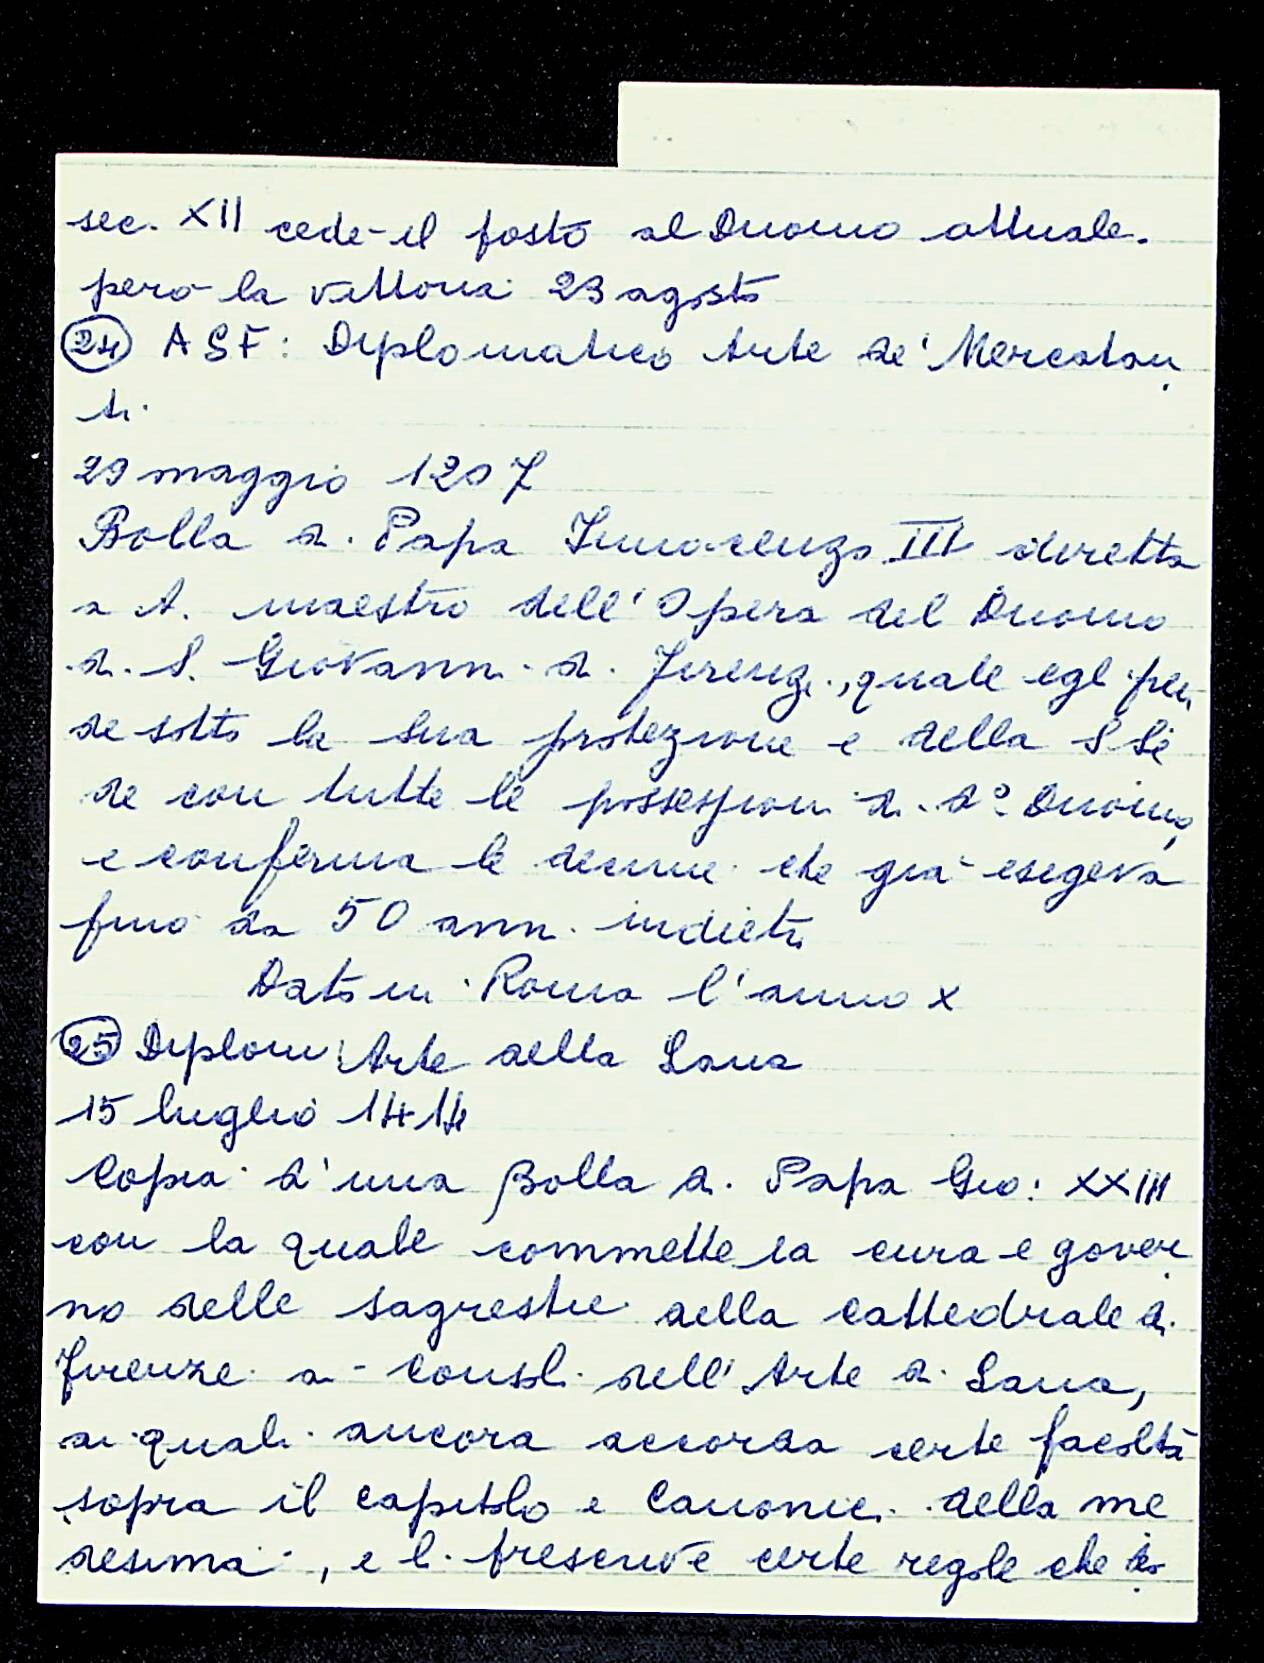 sec. XII cede il posto al Duomo attuale.
però la vittoria 23 agosto
24 ASF: Diplomatico Arte de' Mercatan
ti.
29 maggio 1207
Bolla di Papa Innocenzo III diretta
a A. maestro dell'Opera del Duomo
di S. Giovanni di Firenze, quale egli pren
de sotto la sua protezione e della S Se
de con tutte le possessioni di do Duomo,
e conferma le decime che già esigeva
fino da 50 anni indietro
Dato in Roma l'anno X
25 Diplom Arte della Lana
15 luglio 1414
Copia d'una Bolla di Papa Gio: XXIII
con la quale commette la cura e gover
no delle sagrestie della cattedrale di
Firenze a Consoli dell'Arte di Lana,
ai quali ancora accorda certe facoltà
sopra il capitolo e Canonici della me
desima, e li prescrive certe regole che